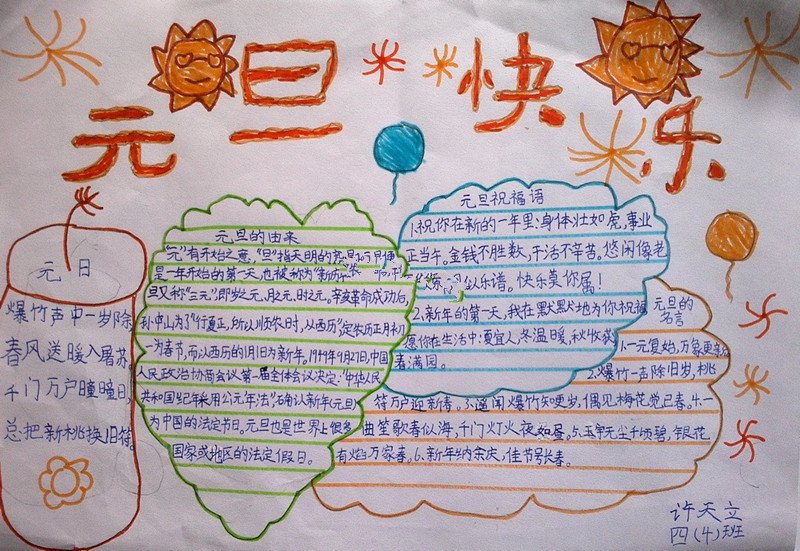 元旦快乐
元日
爆竹声中一岁除
春风送暖入屠苏
千门万户曈曈日
总把新桃换旧符
元旦的由来
"元"有开始之意,"旦"指天明的意思。
是一年开始的第一天,也被称为"新历年"
旦又称"三元",即岁之元、月之元、时之元。辛亥革命成功后,
孙中山为了"行夏正,所以顺农时,以西历"定农历正月初
一为春节,而以西历的1月1日为新年。1949年9月27日,中国
人民政治协商会议第一届全体会议决定:"中华人民
共和国纪年采用公元年法"确认新年(元旦)
为中国的法定节日。元旦也是世界上很多
国家或地区的法定假日。
元旦祝福语
1.祝你在新的一年里:身体壮如虎,事业
正当午。金钱不胜数,干活不辛苦。悠闲像老
似乐谱。快乐莫你属!
2.新年的第一天,我在默默地为你祝福
愿你在生活中:夏宜人,冬温暖,秋收获
春满园。
元旦的
名言
1.一元复始,万象更新
2.爆竹一声除旧岁,桃
符万户迎新春。3.遥闻爆竹知更岁,偶见梅花觉已春。4.一
曲笙歌春似海,千门灯火夜如昼。5.玉宇无尘千顷碧,银花
有焰万家春。6.新年纳余庆,佳节号长春。
许天立
四(4)班